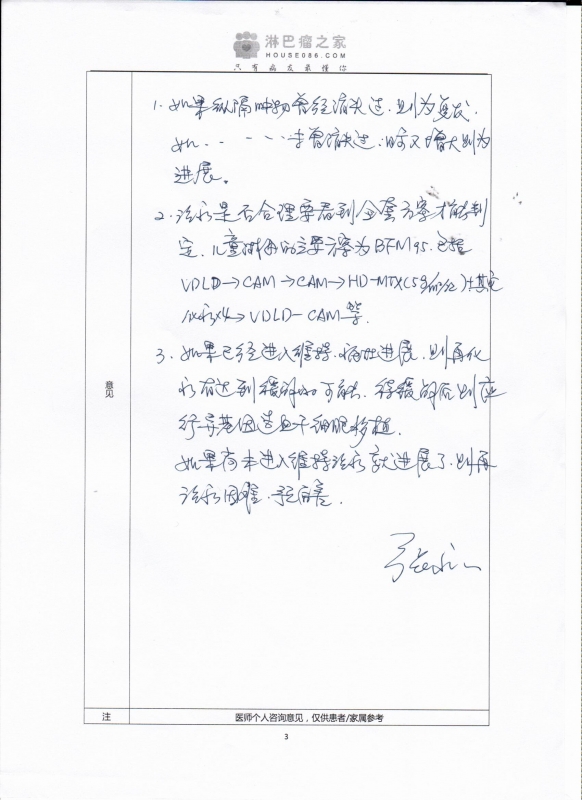 淋巴瘤之家
HOUSE086.COM
只有病友最懂你
1. 如果纵隔肿物曾经消失过,则为复发,
如、- - - - 未曾消失过,时又增大则为
进展。
2. 治疗是否合理要看到全套方案才能判
定,儿童常用的主要方案为BFM95,包括
VDLD→CAM→CAM→HD-MTX(5g/
化疗x4→VDLD-CAM等.
3. 如果已经进入维持,病灶进展,则再化
疗有达到缓解的可能,待缓解后则应
行异基因造血干细胞移植.
如果尚未进入维持治疗就进展了,则再
治疗困难,预后差.
意见
注
医师个人咨询意见,仅供患者/家属参考
3